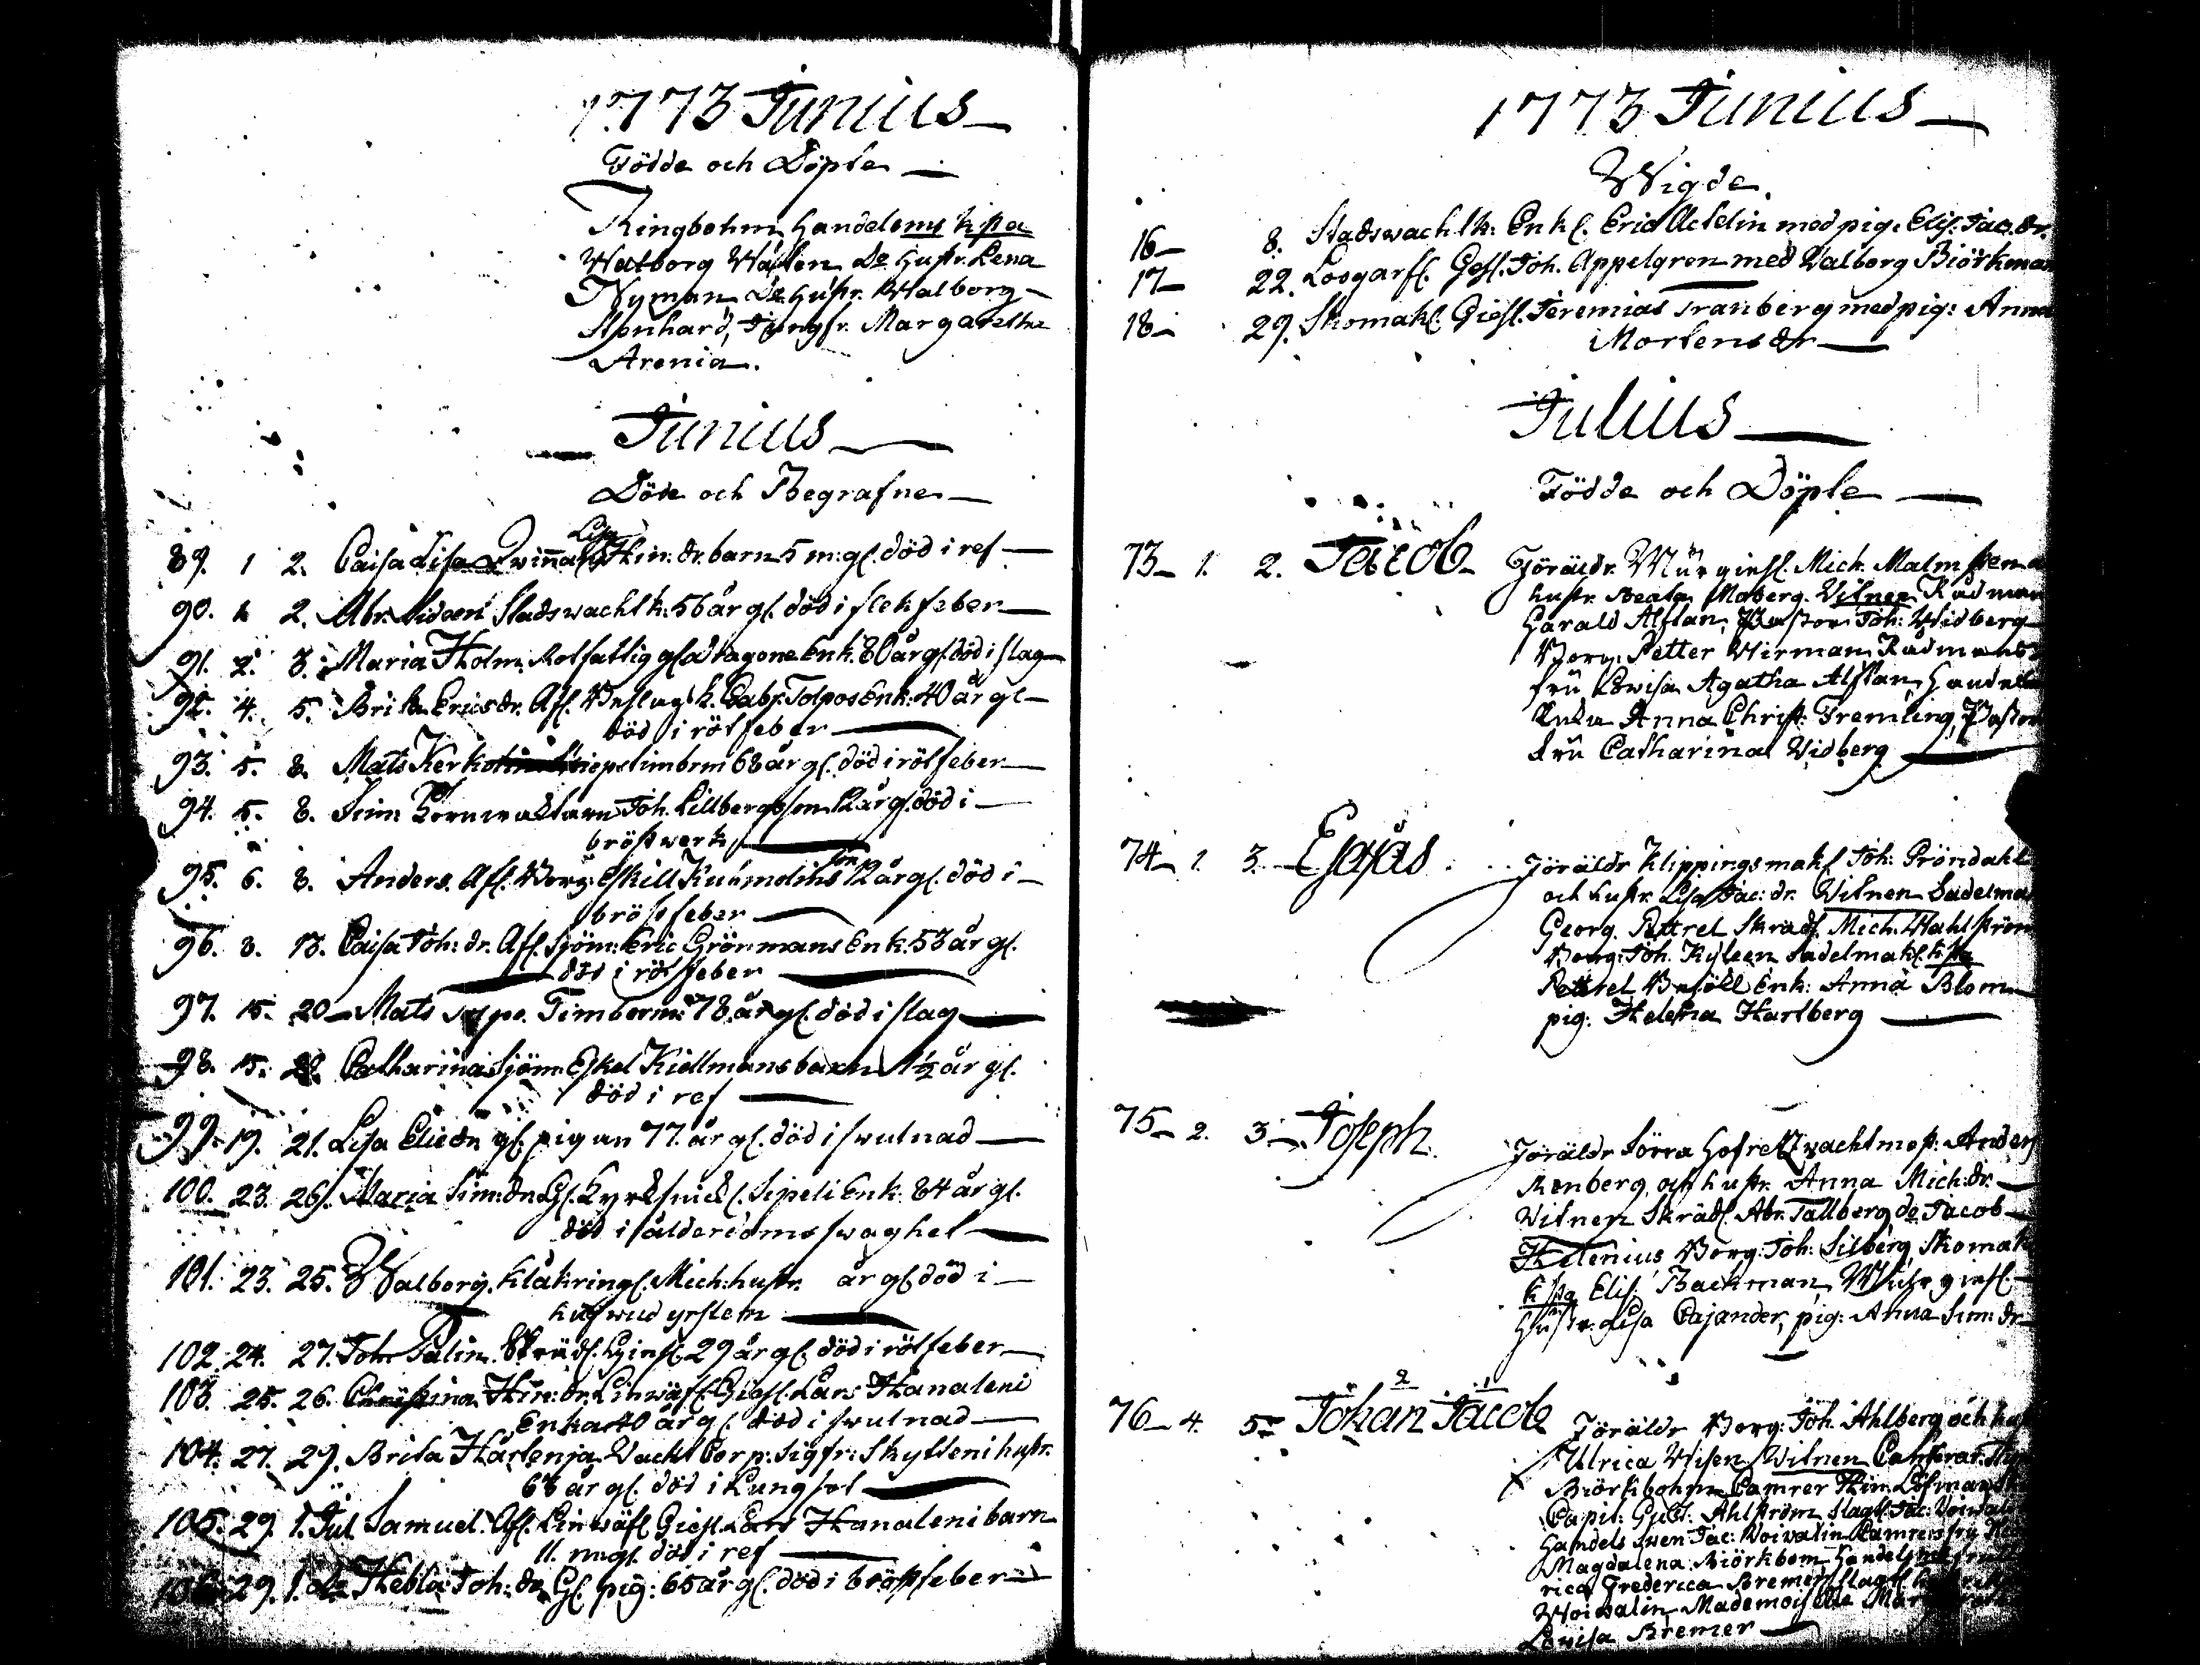 1773 Junius
Födde och Döpte
Ringbohm, Handelsms k:sta
Walborg Wallen, do hustr. Lena
Nyman, do hustr. Walborg
Stenhard, Jungfr. Margaretha
Arenia.
Junius
Döde och Begrafne
Lisa
89. 1 2. Caisa Lisa Hin: dr. barn 5 m: gl. död i ref
90. 1. 2. Abr. Lideen Stadswachtk. 56 år gl. död i fleckfeber
91. 2. 3. Maria Holm Rotfattig gl. dragone Enk. 80 år gl. död i slag
92. 4. 5. Brita Ericsdr. Afl. Beslags k. Gabr. Tolpos Enk: 40 år gl
död i rötfeber
93. 5. 8. Mats Kerko timbrm 68 år gl. död i rötfeber
94. 5. 8. Sim Joh. Lillbergs son 12 år gl. död i
bröstwerk
95. 6. 8. Anders. Afl. Borg: Eskill Kuhmolins son 12 år gl. död i
bröstfeber
96. 8. 13. Caisa Joh: dr. Afl. Sjöm: Eric Grönmans Enk: 53 år gl.
död i rötfeber
97. 15. 20 Mats Timberm: 78 år gl. död i slag
98. 15. 20. Catharina Sjöm: Eskel Kiellmans barn 1½ år gl.
död i ref
99. 19. 21. Lisa Eliedr. gl. pigan 77. år gl. död i swulnad
100. 23. 26. Maria Sim: dr. Gl. Sipeli Enk. 84 år gl.
död i ålderdoms swaghet
101. 23. 25. Walborg. Klåkringl. Mich: hustr. år gl. död i
hufwud yrslen
102. 24. 27. Joh. Palin. Skrädl. Giesl. 29 år gl. död i rötfeber
103. 25. 26. Christina Hin: dr. Linwäfl. Giesl. Lars Hanaleni
Enka 40 år gl. död i swulnad
104. 27. 29. Brita Hartenja Wacht Corp: Sigfr: Skytteni hustr.
68 år gl. död i Lungsot
105. 29. 1. Jul Samuel. Afl. Linwäfl. Giesl. Lars Hanaleni barn
11. m: gl. död i ref
106. 29. 1. do Hebla Joh: dr. Gl. pig: 65 år gl. död i bröstfeber
1773 Junius
Wigde.
16 8. Stadswachtk: Enkl. Eric Achelin med pig. Elis. Jac. dr.
17 22. Loogarfl. Gesl. Joh. Appelgren med Walborg Biörkman
18 29. Skomakl. Giesl. Jeremias Tranberg med pig: Anna
Mortensdr
Julius
Födde och Döpte
73 1. 2. Jacob Föräldr. Mürgiesl. Mich. Malmsten o
hustr. Beata Moberg. Witnen Rådman
Harald Alftan, Pastor Joh: Widberg
Borg: Petter Wirman Rådmans
fru Lowisa Agatha Alftan, Handels
Enka Anna Christ: Tremling, Pastor
fru Catharina Widberg
74 1. 3. Esaias Föräldr Klippingsmakl. Joh: Gröndahl
och hustr. Lisa Jac: dr. Witnen Sadelmak
Georg. Pettrel Skrädl. Mich: Wahlström
Borg: Joh. Kyleen Sadelmakl. k:sta
Pettrel Besökl Enk: Anna Blom
pig: Helena Hartberg
75 2. 3. Joseph. Föräldr Hofrettz wachtmest: Anders
Renberg, och hustr. Anna Mich: dr.
Witnen Skrädl. Abr. Tallberg, do Jacob
Helenius Borg: Joh: Silberg, Skomak
k:sta Elis. Backman, Mürgiesl.
Hustr. Lisa Cajander, pig: Anna Sim: dr
76 4. 5. Johan Jacob Föräldr Borg: Joh. Ahlberg och hust
Ulrica Wisen, Witnen
Biörkbohm Camrer Hin. Löfman
Capit: Gust: Ahlström Slagt. Jac: Woiwalin
Handels swen Jac: Woiwalin Camrers fru
Magdalena Biörkbom Handelsm fru
rica Frederica Bremer Slagtl.
Woiwalin, Mademoiselle
Lowisa Bremer